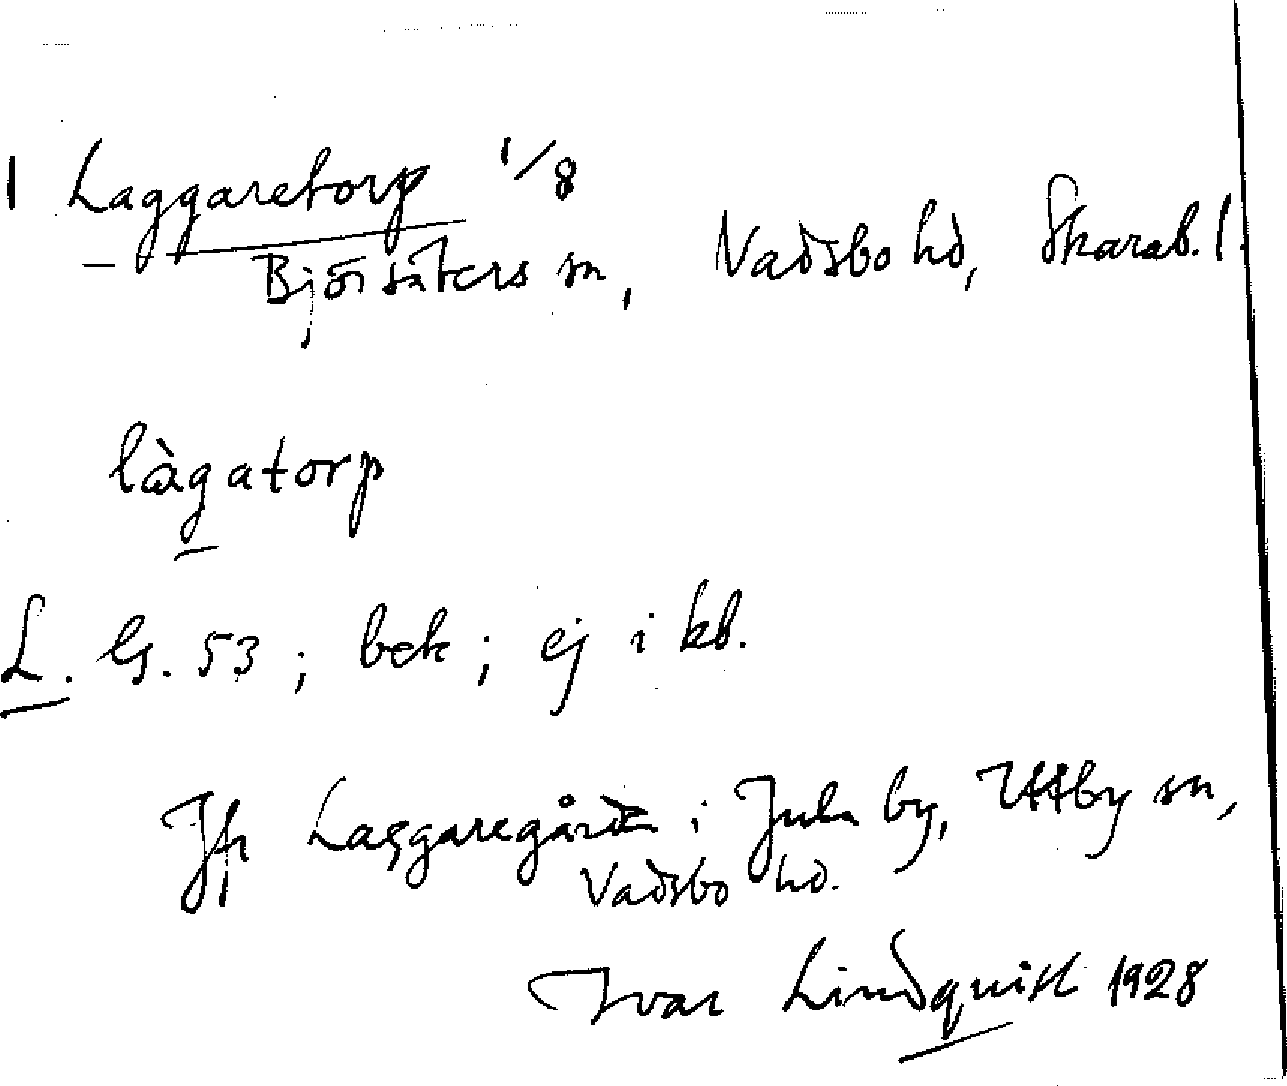 1 Laggaretorp 1/8
Björsäters sn, Vadsbo hd, Skarab. l.
làgatorp
L. G. 53; bek; ej i kb.
Jfr Laggaregårde i Jula by, Utby sn,
Vadsbo hd.
Ivar Lindquist 1928